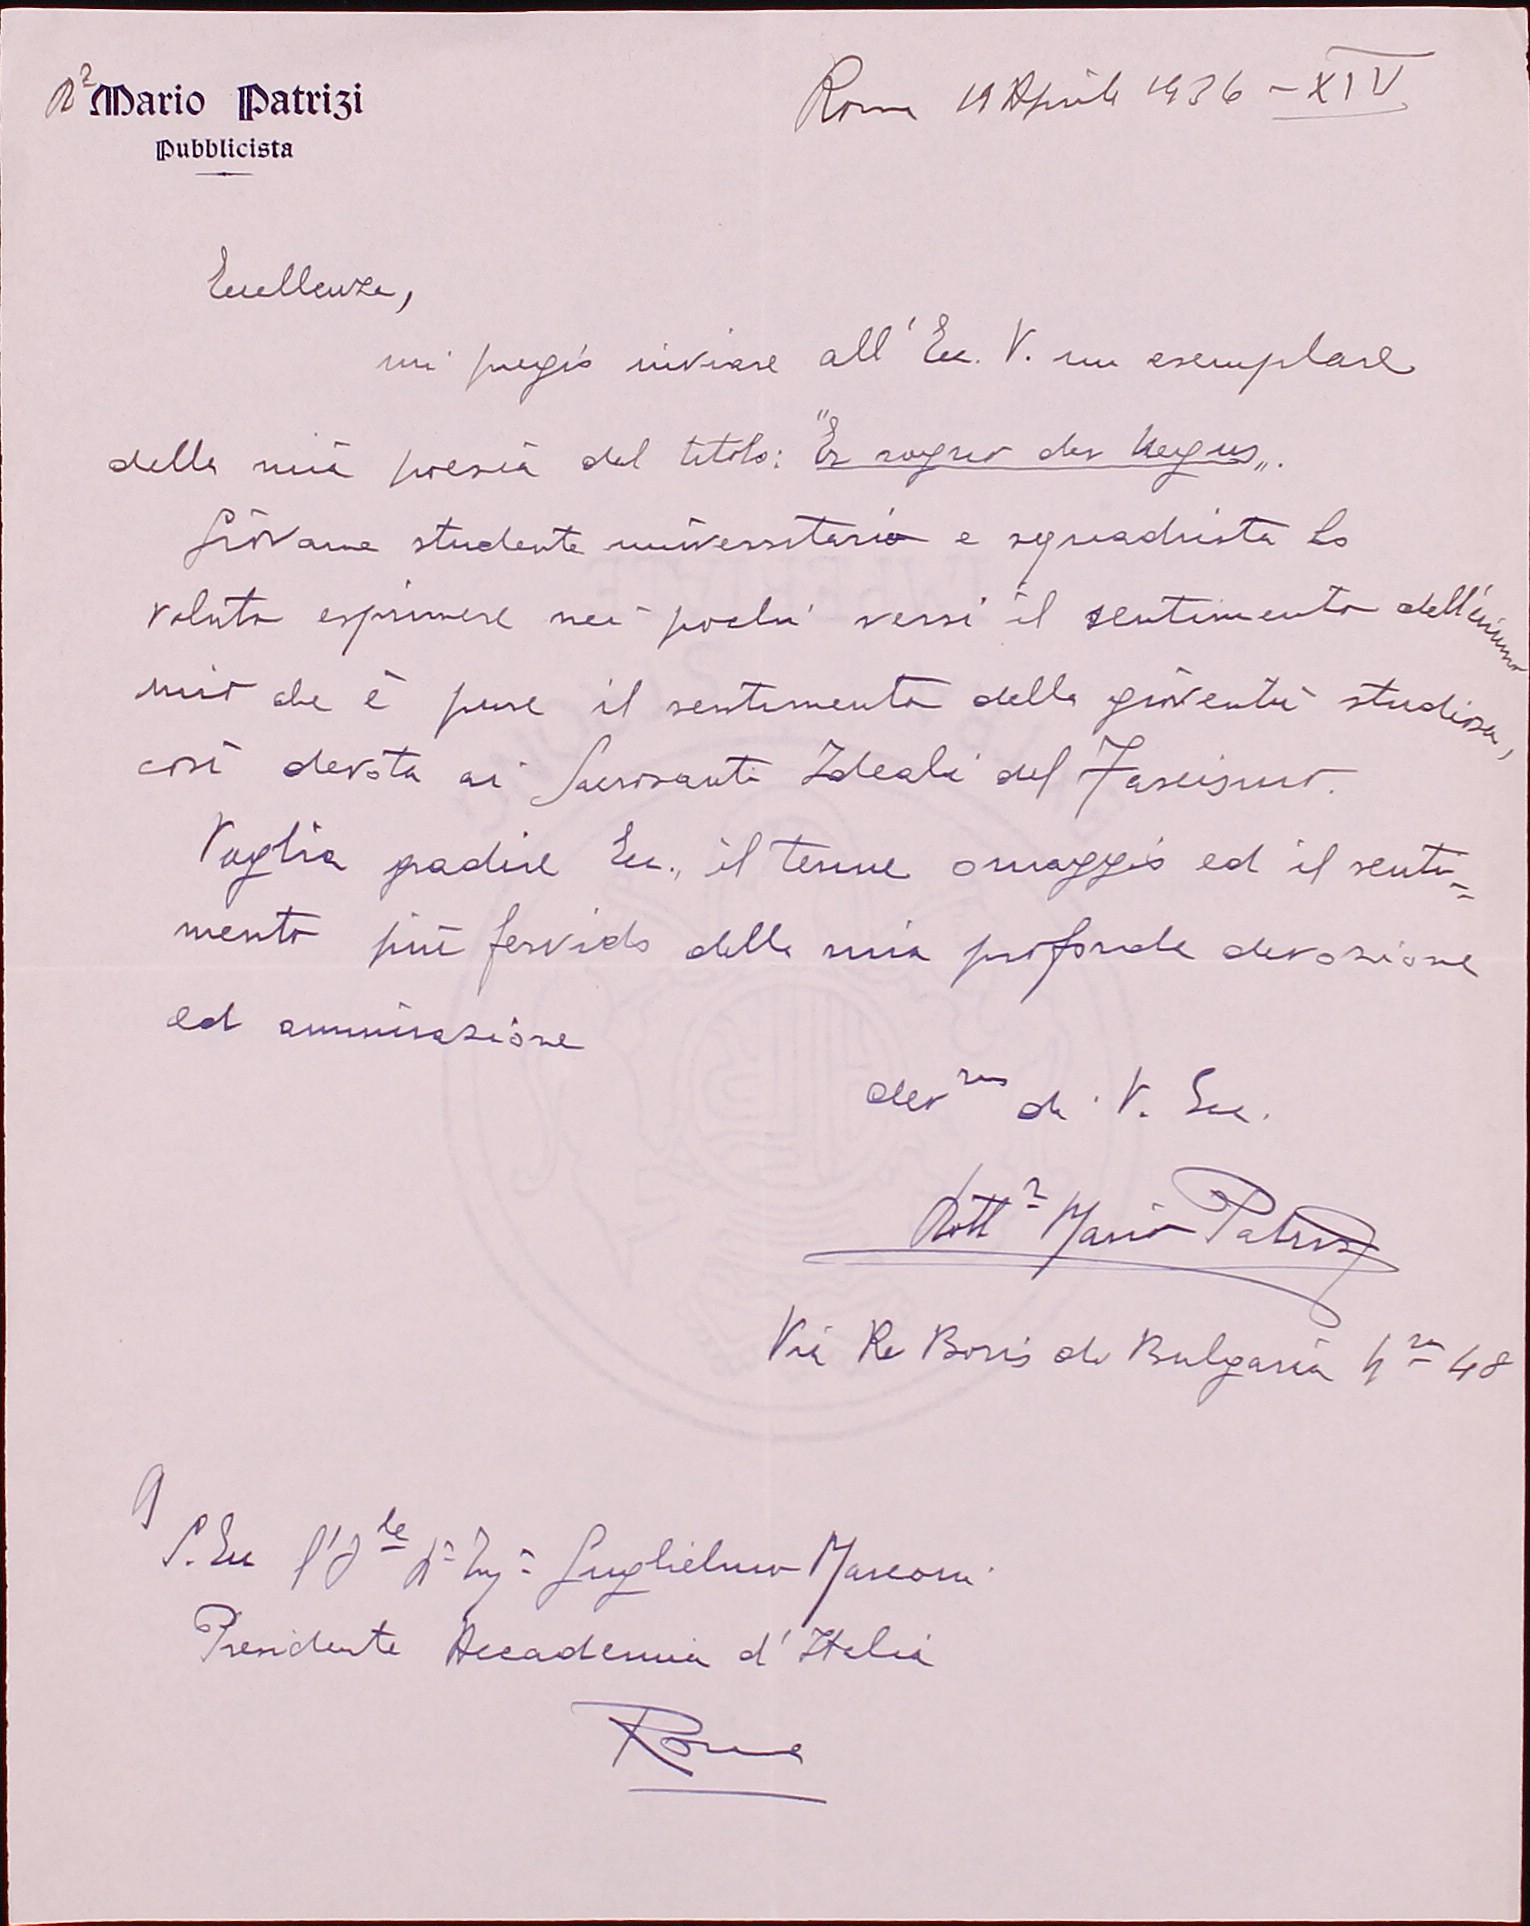 Dr Mario Patrizi
Pubblicista
Roma 19 Aprile 1936 - XIV
Eccellenza,
mi pregio inviare all'Ecc. V. un esemplare
della mia poesia dal titolo: "Er sogno der Negus„.
Giovane studente universitario e squadrista ho
voluto esprimere nei pochi versi il sentimento dell'animo
mio che è pure il sentimento della gioventù studiosa,
così devota ai Sacrosanti Ideali del Fascismo.
Voglia gradire Ecc., il tenue omaggio ed il senti=
mento più fervido della mia profonda devozione
ed ammirazione
devmo di V. Ecc.
Dottr Mario Patrizi
Via Re Boris di Bulgaria nro 48
A
S. Ecc l'Ile Dr Ing: Guglielmo Marconi
Presidente Accademia d'Italia
Roma